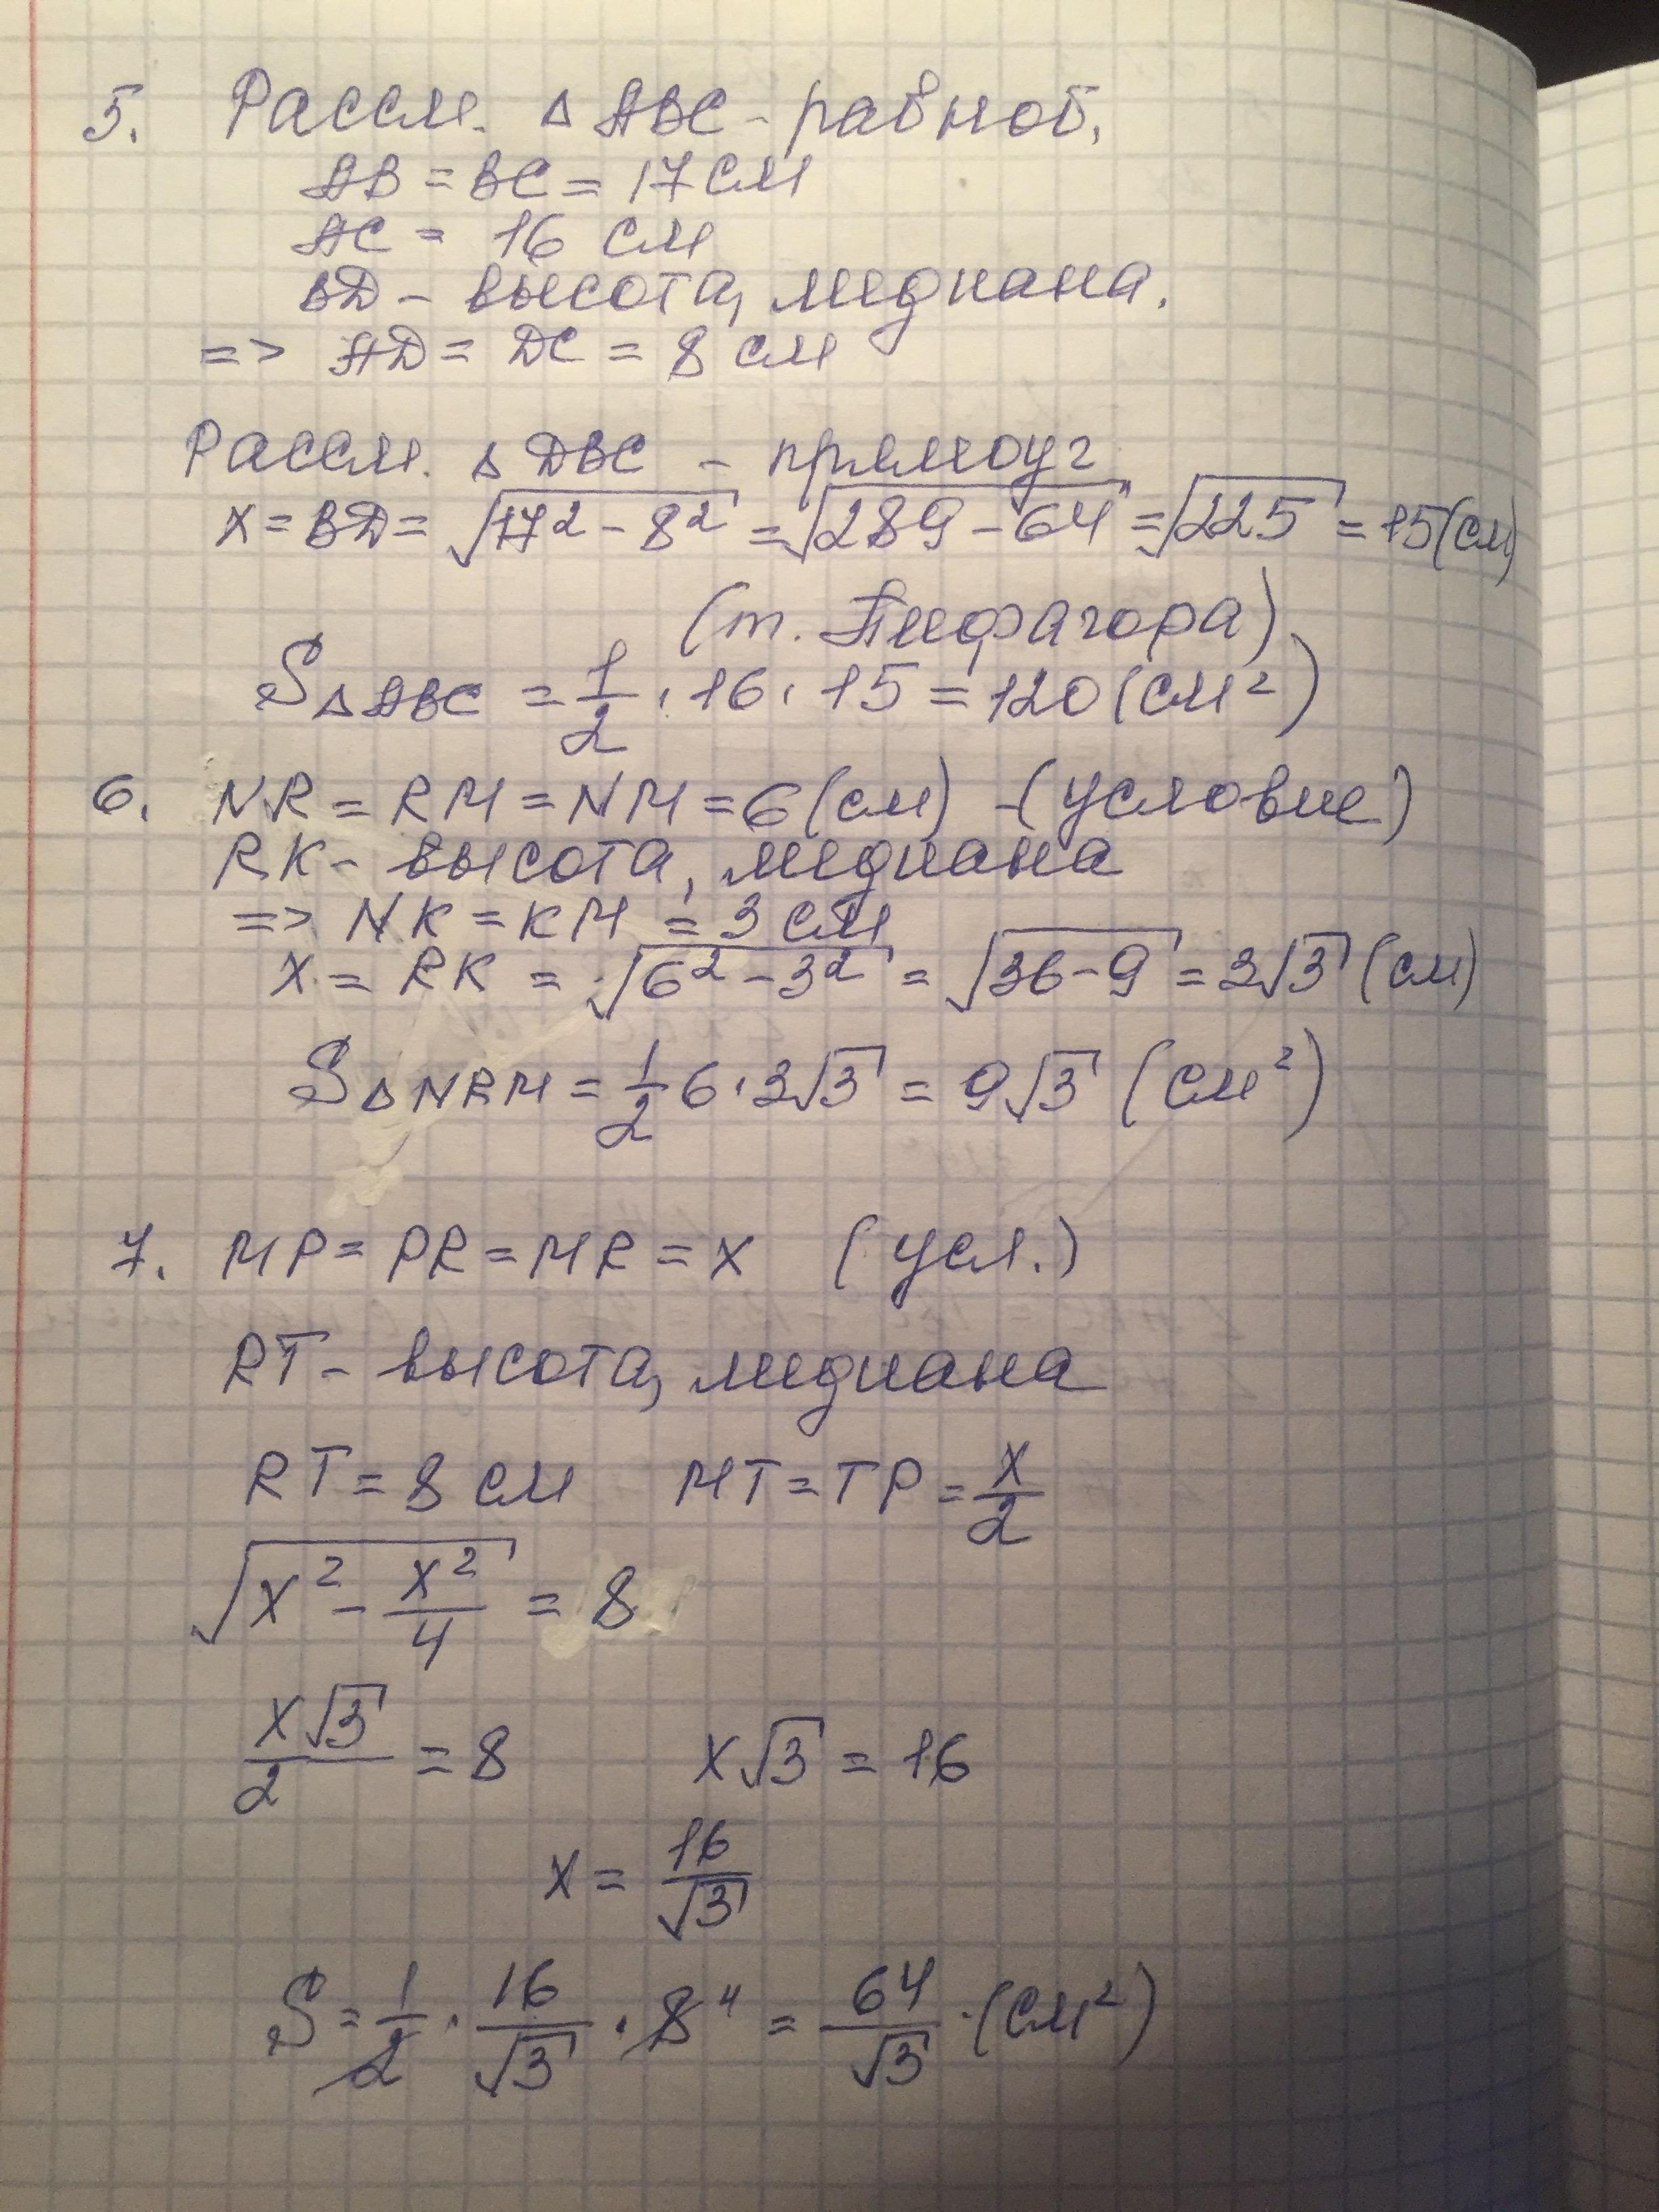 5. Рассм. △ ABC - равноб.
AB = BC = 17 см
AC = 16 см
BD - высота, медиана.
=> AD = DC = 8 см
Рассм. △ DBC - прямоуг
x = BD = √(17² - 8²) = √(289 - 64) = √225 = 15 (см)
(т. Пифагора)
S△ABC = 1/2 · 16 · 15 = 120 (см²)
6. NR = RM = NM = 6 (см) - (условие)
RK - высота, медиана
=> NK = KM = 3 см
x = RK = √(6² - 3²) = √(36 - 9) = 3√3 (см)
S△NRM = 1/2 6 · 3√3 = 9√3 (см²)
7. MP = PR = MR = x (усл.)
RT - высота, медиана
RT = 8 см MT = TP = x/2
√(x² - x²/4) = 8
x√3/2 = 8 x√3 = 16
x = 16/√3
S = 1/2 · 16/√3 · 8 4 = 64/√3 · (см²)